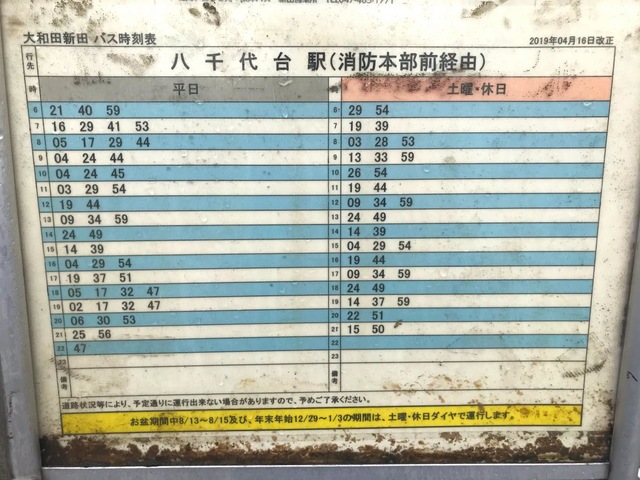 大和田新田 バス時刻表
2019年04月16日改正
行先 八千代台 駅(消防本部前経由)
時 平日 時 土曜・休日
6 21 40 59 6 29 54
7 16 29 41 53 7 19 39
8 05 17 29 44 8 03 28 53
9 04 24 44 9 13 33 59
10 04 24 45 10 26 54
11 03 29 54 11 19 44
12 19 44 12 09 34 59
13 09 34 59 13 24 49
14 24 49 14 14 39
15 14 39 15 04 29 54
16 04 29 54 16 19 44
17 19 37 51 17 09 34 59
18 05 17 32 47 18 24 49
19 02 17 32 47 19 14 37 59
20 06 30 53 20 22 51
21 25 56 21 15 50
22 47 22
23 23
備考 備考
道路状況等により、予定通りに運行出来ない場合がありますので、予めご了承ください。
お盆期間中8/13～8/15及び、年末年始12/29～1/3の期間は、土曜・休日ダイヤで運行します。